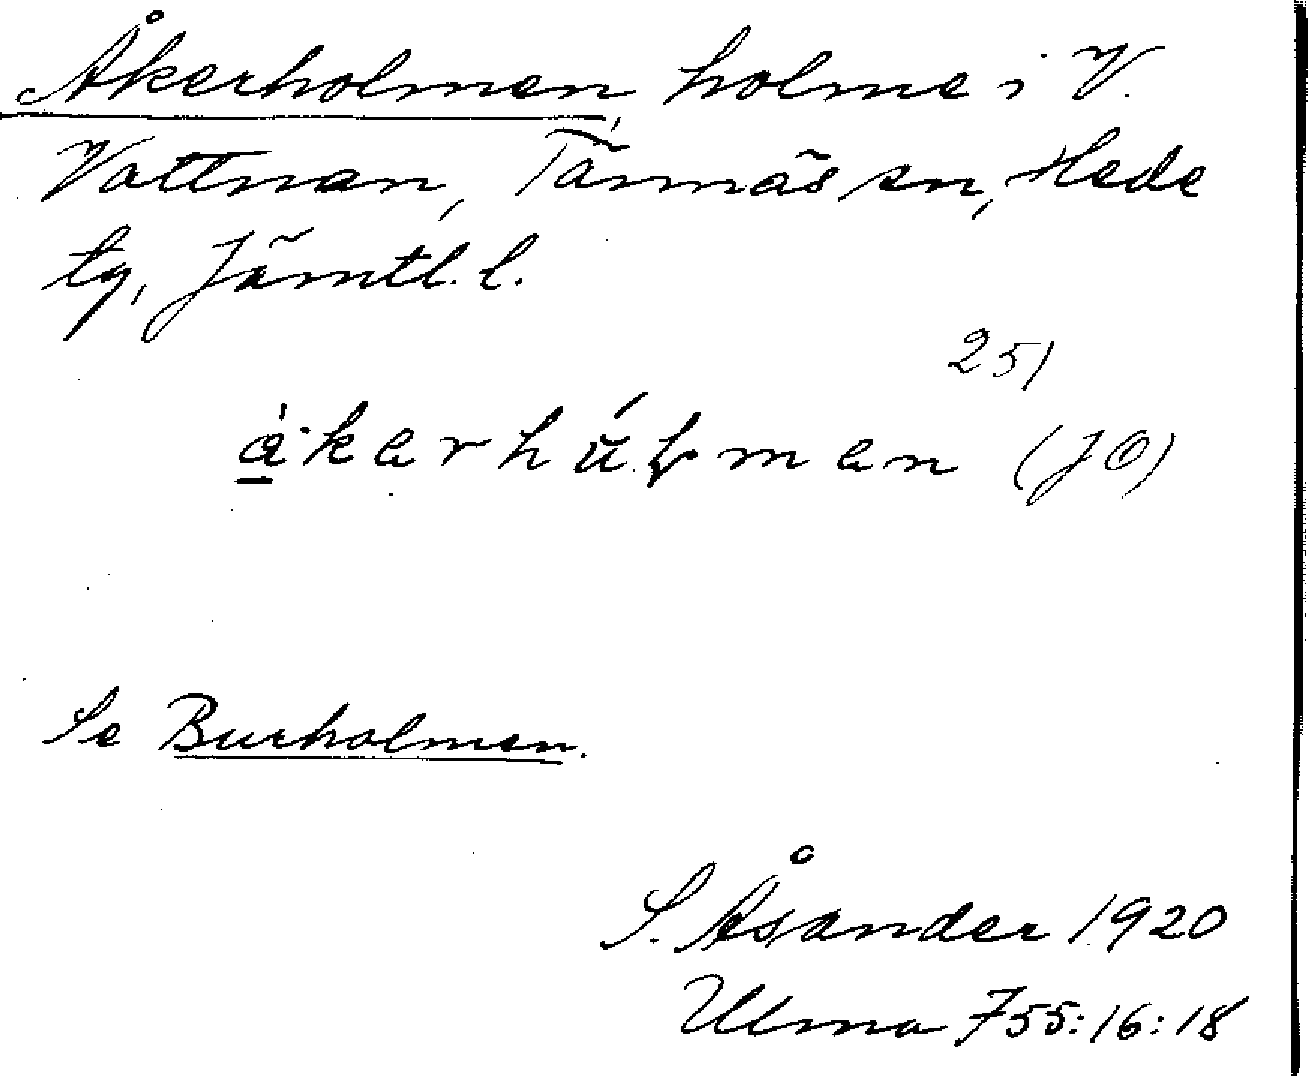 Åkerholmen, holme i V.
Vattnan, Tännäs sn, Hede
tg, Jämtl. l.
251
(JO)
Se Burholmen.
S. Åsander 1920
Ulma 755:16:18